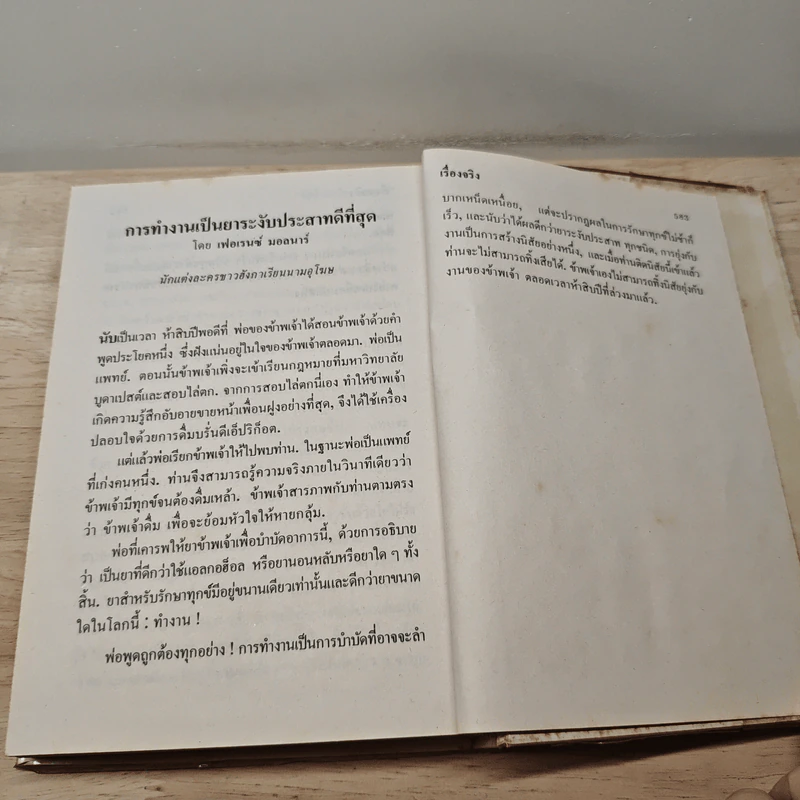 การทำงานเป็นยาระงับประสาทดีที่สุด
โดย เฟอเรนซ์ มอลนาร์
นักแต่งละครชาวฮังกาเรียนนามอุโฆษ
นับเป็นเวลา ห้าสิบปีพอดีที่ พ่อของข้าพเจ้าได้สอนข้าพเจ้าด้วยคำ
พูดประโยคหนึ่ง ซึ่งฝังแน่นอยู่ในใจของข้าพเจ้าตลอดมา. พ่อเป็น
แพทย์. ตอนนั้นข้าพเจ้าเพิ่งจะเข้าเรียนกฎหมายที่มหาวิทยาลัย
บูดาเปสต์และสอบไล่ตก. จากการสอบไล่ตกนี่เอง ทำให้ข้าพเจ้า
เกิดความรู้สึกอับอายขายหน้าเพื่อนฝูงอย่างที่สุด, จึงได้ใช้เครื่อง
ปลอบใจด้วยการดื่มบรั่นดีเอ็ปริก็อต.
แต่แล้วพ่อเรียกข้าพเจ้าให้ไปพบท่าน. ในฐานะพ่อเป็นแพทย์
ที่เก่งคนหนึ่ง. ท่านจึงสามารถรู้ความจริงภายในวินาทีเดียวว่า
ข้าพเจ้ามีทุกข์จนต้องดื่มเหล้า. ข้าพเจ้าสารภาพกับท่านตามตรง
ว่า ข้าพเจ้าดื่ม เพื่อจะย้อมหัวใจให้หายกลุ้ม.
พ่อที่เคารพให้ยาข้าพเจ้าเพื่อบำบัดอาการนี้, ด้วยการอธิบาย
ว่า เป็นยาที่ดีกว่าใช้แอลกอฮ็อล หรือยานอนหลับหรือยาใด ๆ ทั้ง
สิ้น. ยาสำหรับรักษาทุกข์มีอยู่ขนานเดียวเท่านั้นและดีกว่ายาขนาด
ใดในโลกนี้ : ทำงาน !
พ่อพูดถูกต้องทุกอย่าง ! การทำงานเป็นการบำบัดที่อาจจะลำ
เรื่องจริง
๖๓
บากเหน็ดเหนื่อย, แต่จะปรากฏผลในการรักษาทุกข์ไม่ช้าก็
เร็ว, และนับว่าได้ผลดีกว่ายาระงับประสาท ทุกชนิด, การยุ่งกับ
งานเป็นการสร้างนิสัยอย่างหนึ่ง, และเมื่อท่านติดนิสัยนี้เข้าแล้ว
ท่านจะไม่สามารถทิ้งเสียได้. ข้าพเจ้าเองไม่สามารถทิ้งนิสัยยุ่งกับ
งานของข้าพเจ้า ตลอดเวลาห้าสิบปีที่ล่วงมาแล้ว.